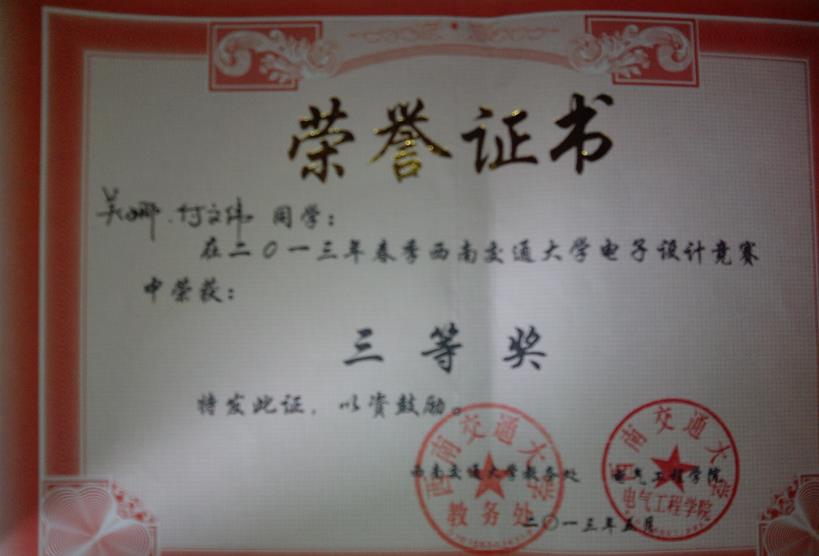 荣誉证书
付文伟 同学：
在二〇一三年春季西南交通大学电子设计竞赛
中荣获：
三等奖
特发此证，以资鼓励。
西南交通大学教务处 电气工程学院
二〇一三年五月
西南交通大学
教务处
西南交通大学
电气工程学院